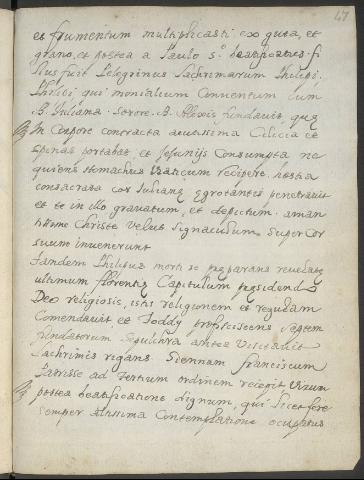 47
et frumentum multiplicasti ex guta, et
grano, et postea a Paulo 5º beatificatus fi
lius fuit Pelegrinus lachrimarum Philipi.
Philipi qui monialium Conuentum cum
B. Juliana. sorore. B. Alexis fundauit, quę
In Corpore contracta acutissima Cilicia et
spinas portabat, et Jejunijs Consumpta ne
quiens stomachus Viaticum recipere. hostia
consacrata cor Julianę egrotantis penetrauit
et te in illo grauatum, et depictum. aman
tissime Christe velut signaculum super cor
suum inuenerunt
tandem Philipus morti se preparans reuersus
ultimum florentię Capitulum pręsidendo
Deo religiosis, istis religionem et regulam
Comendauit et Toddy proficiscens septem
fundatorum sepulchra antea Visitauit
lachrimis rigans. Siennam franciscum
Patrisse ad tertium ordinem recepit Virum
postea beatificatione dignum, qui licet fere
semper altissima Contemplatione ocupatus